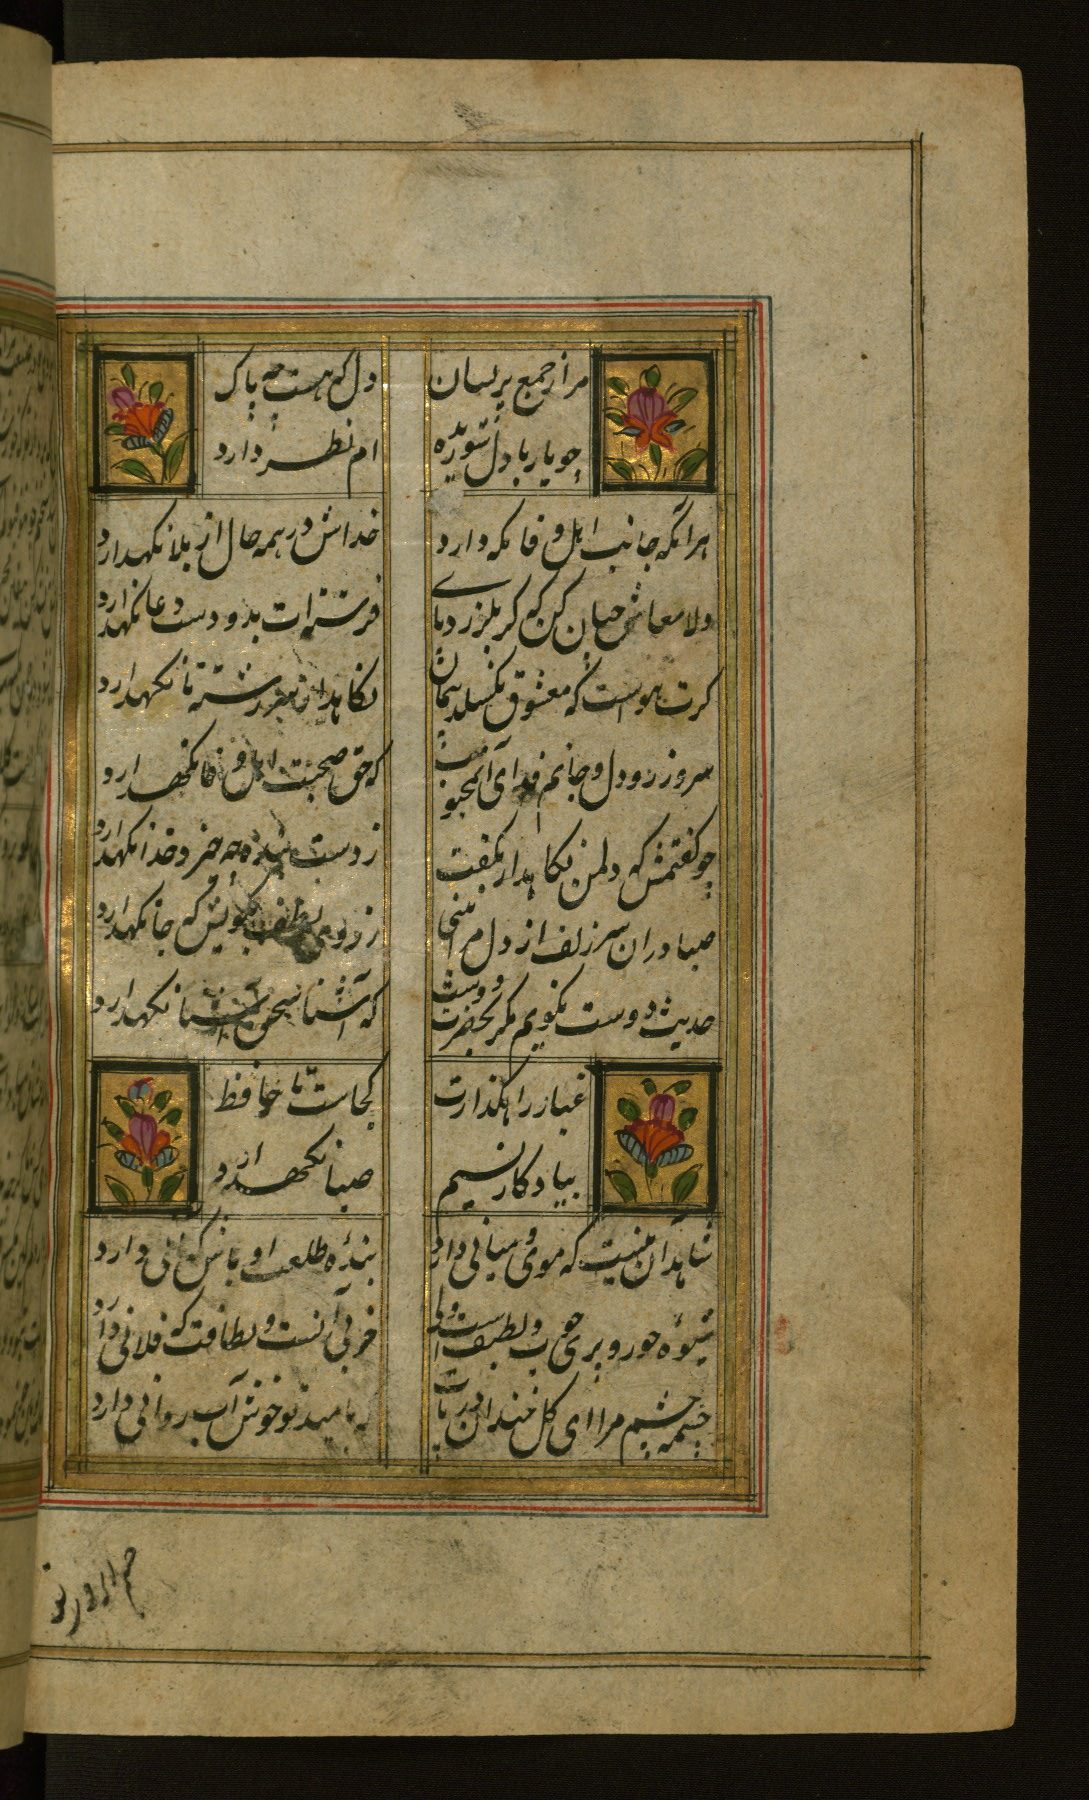 مرا ز جمع پریشان
دل که هست چه باک
چو یار با دل شوریده
ام نظر دارد
هر آنکه جانب اهل وفا نکه دارد
خداش در همه حال از بلا نکهدارد
دلا معاش چنان کن که کر بلرزد پای
فرشته ات بدو دست دعا نکهدارد
کرت هواست که معشوق نکسلد پیمان
نکاهدار سر رشته تا نکهدارد
سر و زر و دل و جانم فدای آن محبوب
که حق صحبت اهل وفا نکهدارد
چو کفتمش که دلمن نکاهدار بکفت
ز دست بنده چه خیزد خدا نکهدارد
صبا در آن سر زلف ار دل مرا بینی
ز روی لطف بکویش که جا نکهدارد
حدیث دوست نکویم مکر بحضرت دوست
که آشنا سخن آشنا نکهدارد
غبار راهکذارت
کجاست تا حافظ
بیادکار نسیم
صبا نکهدارد
شاهد آن نیست که موی و میانی دارد
بنده طلعت او باش که آنی دارد
شیوه حور و پری خوب و لطیف است ولی
خوبی آنست و لطافت که فلانی دارد
چشمه چشم مرا ای کل خندان دریاب
که بامید تو خوش آب روانی دارد
خم ابروی تو